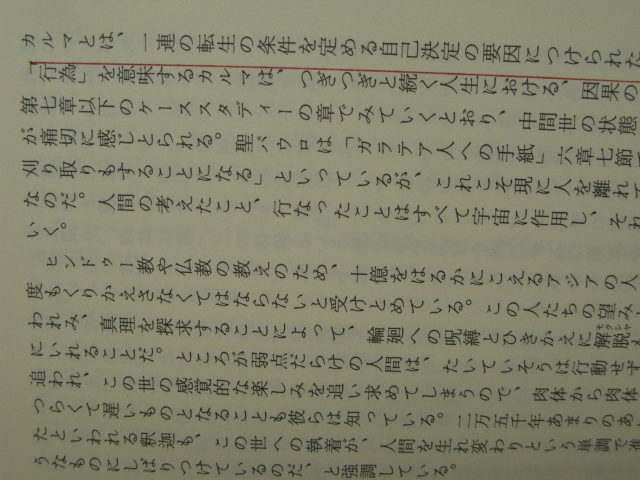 カルマとは、一連の転生の条件を定める自己決定の要因につけられた
「行為」を意味するカルマは、つぎつぎと続く人生における、因果の
第七章以下のケーススタディーの章でみていくとおり、中間世の状態
が痛切に感じとられる。聖パウロは「ガラテア人への手紙」六章七節
刈り取りもすることになる」といっているが、これこそ現に人を離れて
なのだ。人間の考えたこと、行なったことはすべて宇宙に作用し、それ
いく。
ヒンドゥー教や仏教の教えのため、十億をはるかにこえるアジアの人
度もくりかえさなくてはならないと受けとめている。この人たちの望み
われみ、真理を探求することによって、輪廻への呪縛とひきかえに解脱モクシャ
にいれることだ。ところが弱点だらけの人間は、たいていそうは行動せず
追われ、この世の感覚的な楽しみを追い求めてしまうので、肉体から肉体
つらくて遅いものとなることも彼らは知っている。二万五千年あまりのあ
たといわれる釈迦も、この世への執着が、人間を生れ変わりという単調で
うなものにしばりつけているのだ、と強調している。